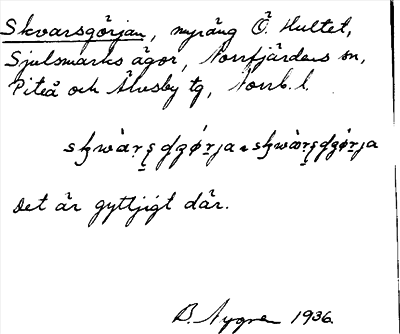 Skvarsgörjan, myräng Ö. Hultet,
Sjulsmarks ägor, Norrfjärdens sn,
Piteå och Älvsby tg, Norrb. l.
Det är gyttjigt där.
B. Nygren 1936.